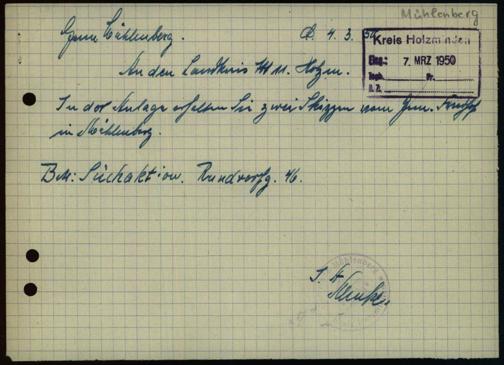 Mühlenberg
Gem. Mühlenberg. d. 4. 3. 50
Kreis Holzminden
Eing.: 7. MRZ 1950
Tagb. Nr.
A. Z.
An den Landkreis Holzm.
In der Anlage erhalten Sie zwei Skizzen vom Gem. Friedhof
in Mühlenberg.
Betr: Suchaktion. Rundverfg. 46.
Mühlenberg
I. A